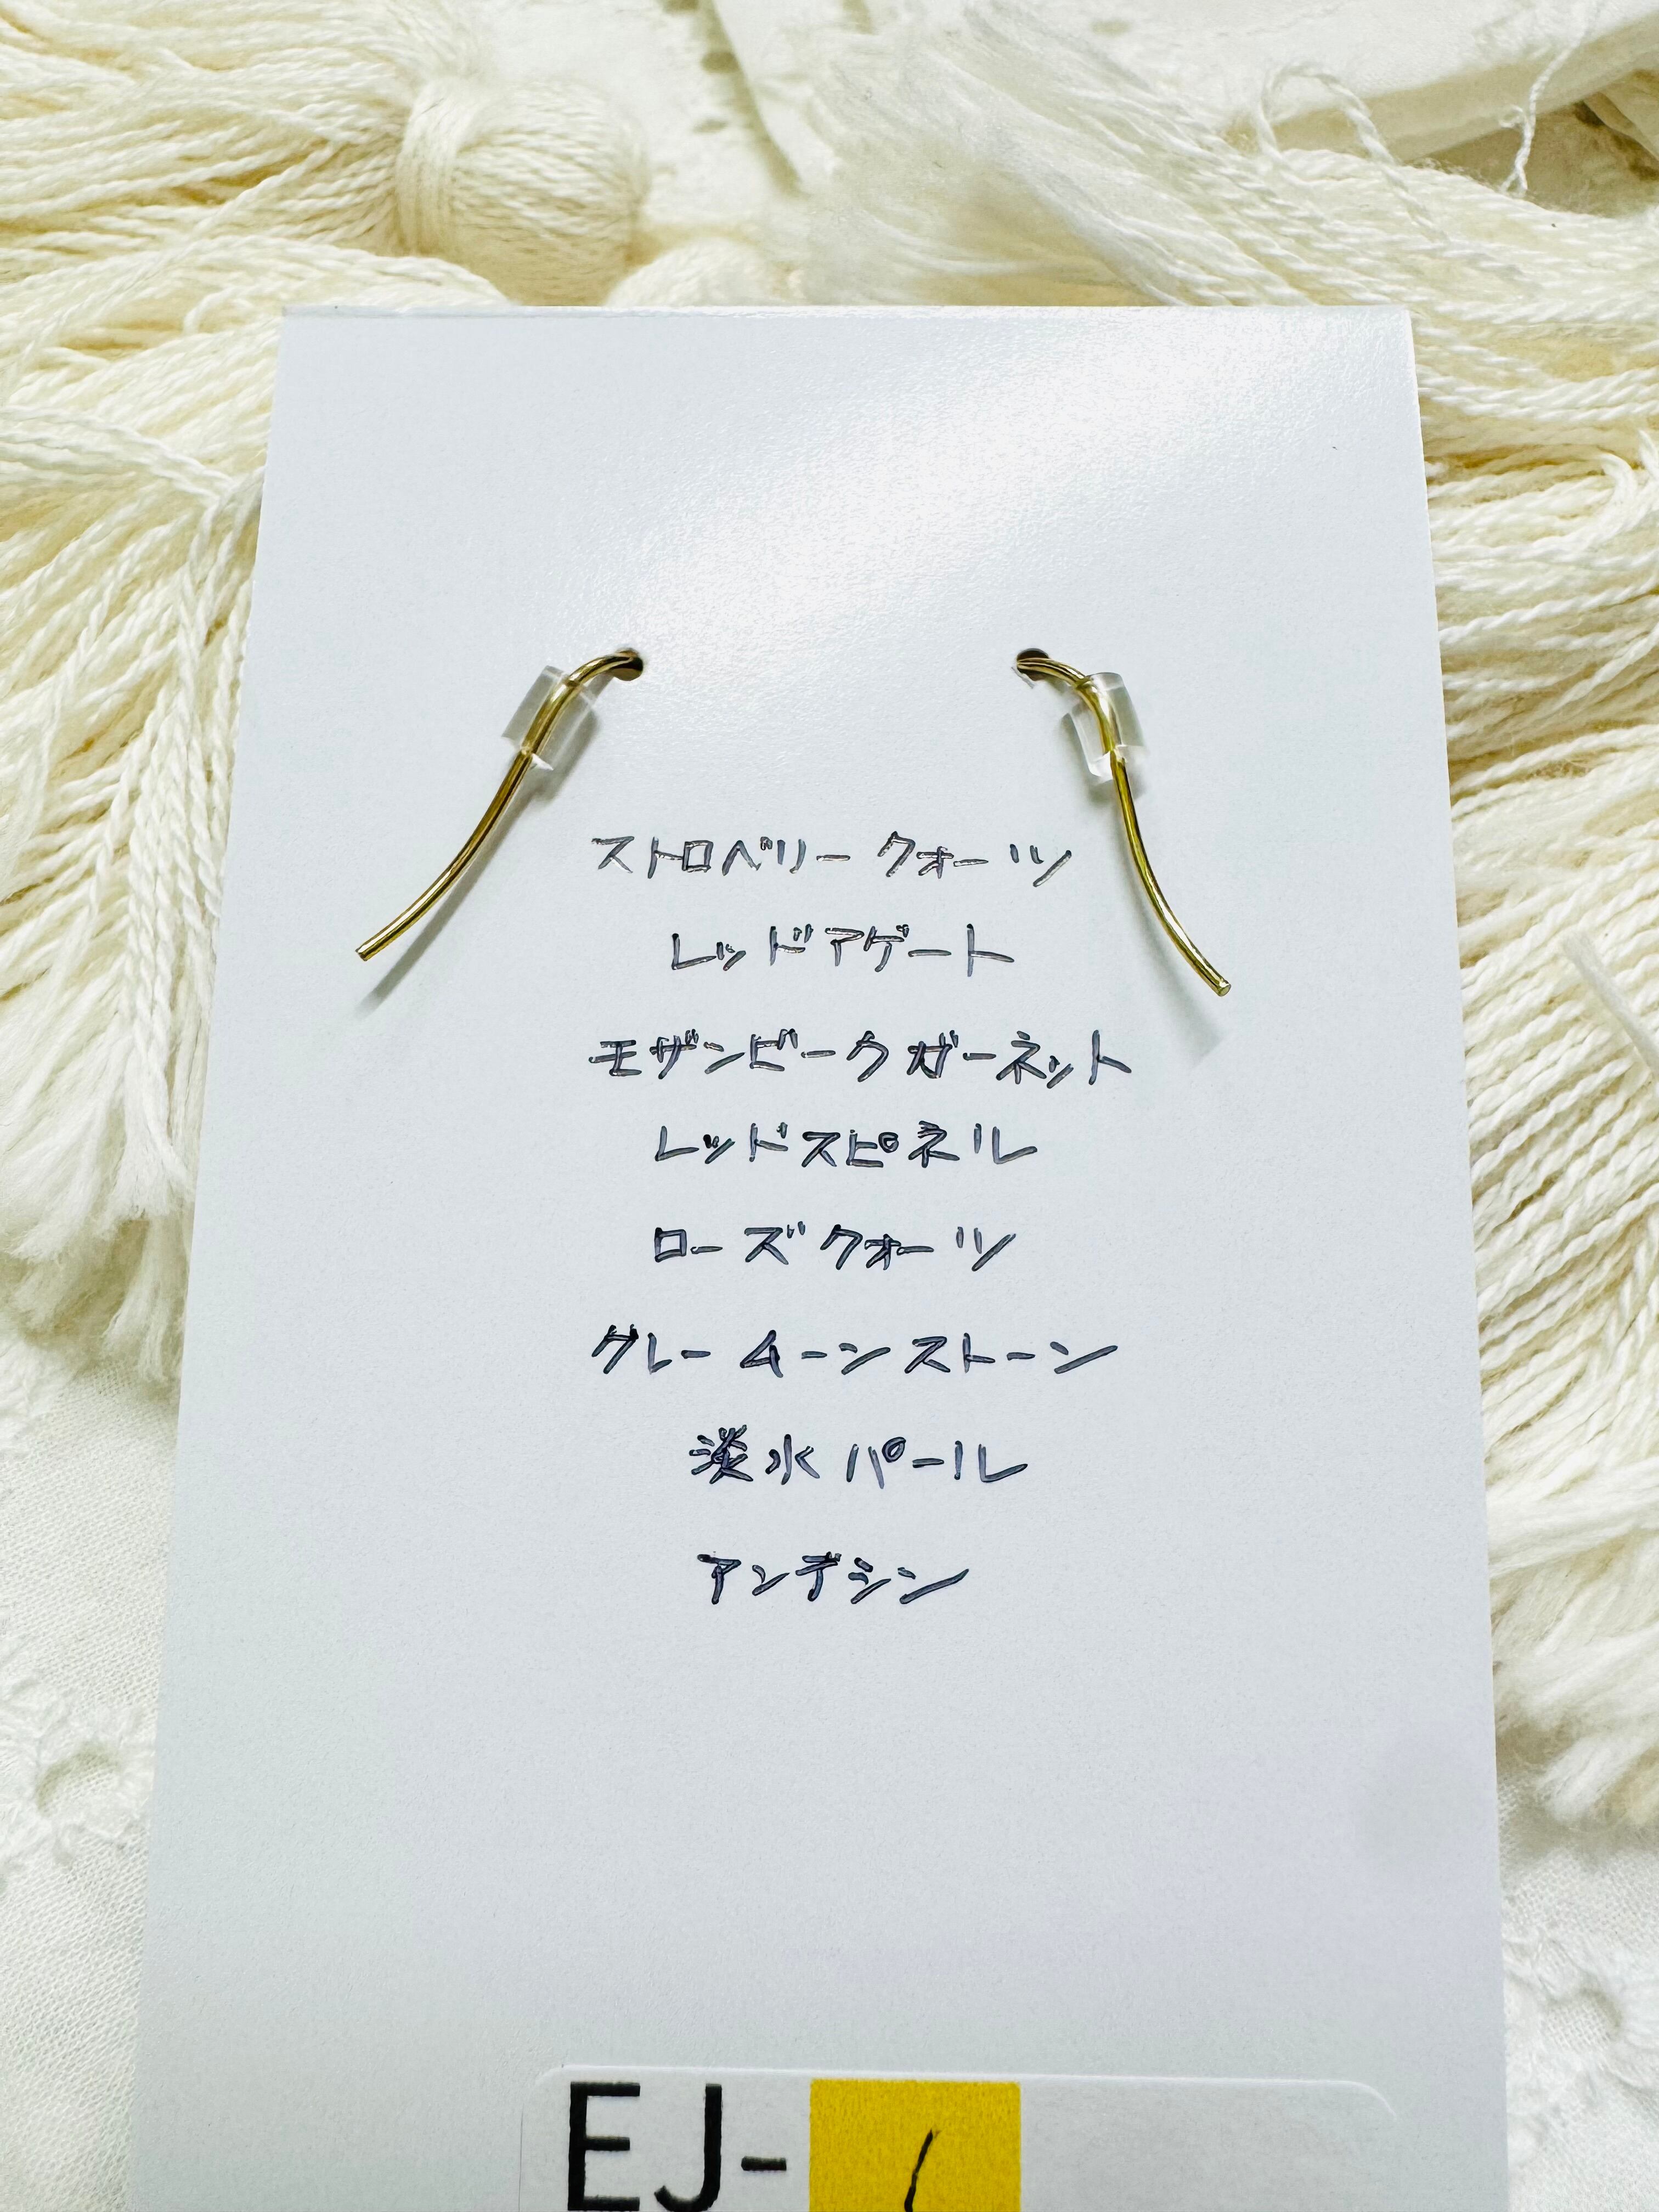 ストロベリークォーツ
レッドアゲート
モザンビークガーネット
レッドスピネル
ローズクォーツ
グレームーンストーン
淡水パール
アンデシン
EJ-